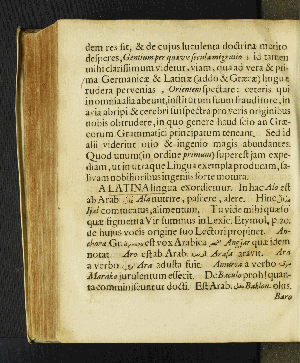 dem res sit, & de cujus luculenta doctrina merito
desperes, Gentium per quævis secula migratio: id tamen
mihi clarissimum videtur, viam, qua ad vera & pri-
ma Germanicæ & Latinæ (addo & Græcæ) linguæ
rudera pervenias, Orientem spectare: ceteris qui
in omnia alia abeunt, institutum suum fraudi fore, in
avia abripi & cerebri sui spectra pro veris originibus
nobis obtrudere, in quo genere haud scio an Græ-
corum Grammatici principatum teneant. Sed id
alii viderint otio & ingenio magis abundantes.
Quod unum (in ordine primum) superest jam expe-
diam, ut in utraque Lingua exempla producam, sa-
livam nobilioribus ingeniis forte motura.
A LATINA lingua exordiemur. In hac Alo est
ab Arab. Ala nutrire, pascere, alere. Hinc
Ijal comitatus, alimentum,
quæ figmenta Vir summus in Lexic. Etymol. p. 20.
de hujus vocis origine suo Lectori propinet. An-
chora Gr. est vox Arabica Angjar quæ idem
notat. Aro est ab Arab. aravit. Ara
a verbo Ara adusta fuit. a verbo
Maraka jurulentum effecit. De Baculo proh! quan-
ta comminiscuntur docti. Est Arab. Baklon. olus.
Baro